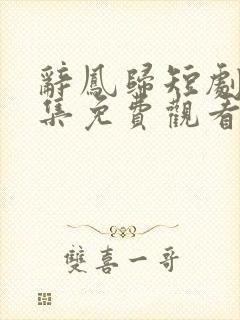 辭鳳歸短劇
集免費觀看
雙喜一哥